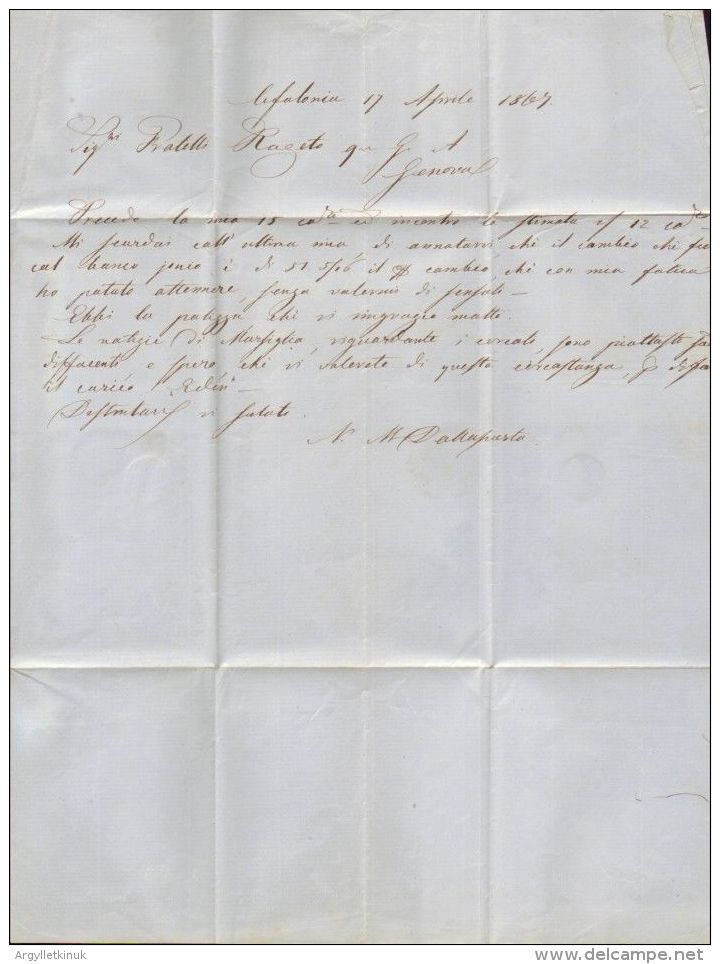 Cefalonia 17 Aprile 1867
Sig.ri Fratelli Rageto qu G. A
Genova
Precede la mia 15 co.te ed incontro la stimata 12 co.te
Mi scordai coll' ultima mia, di annotarvi, chè il cambio che
col banco jonio è di 51 5/16 il cambio, chè con mia fatica
ho potuto ottennere, senza valermi di sensale —
Ebbi la polizza chè vi ringrazio molto.
Le notizie di Marsiglia, riguardante i cercali, sono piuttosto
diffacenti e spero, chè vi valerete di questa circostanza,
il carico
vi saluto.
N. M. Dallaporta
Argylletkinuk
www.delcampe.net